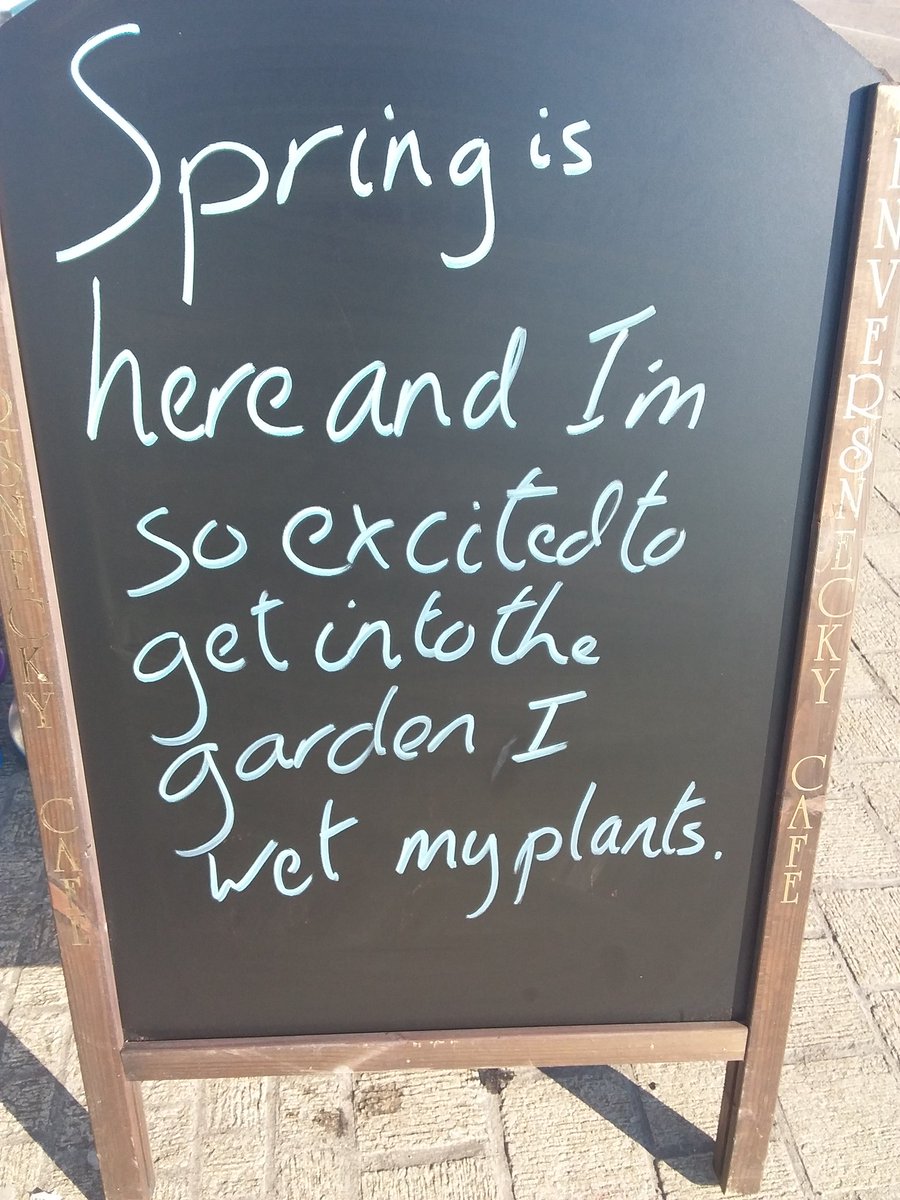 Spring is
here and I'm
so excited to
get into the
garden I
wet my plants.
INVERSNECKY CAFE
RSNECKY CAFE